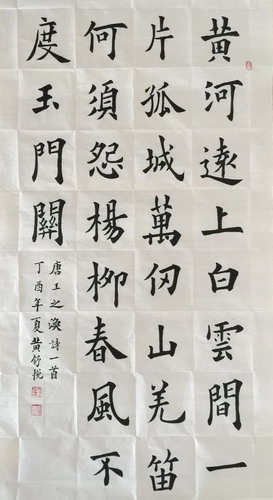 黄河遠上白雲間一
片孤城萬仞山羌笛
何須怨楊柳春風不
度玉門關
唐王之渙詩一首
丁酉年夏黄舒悦